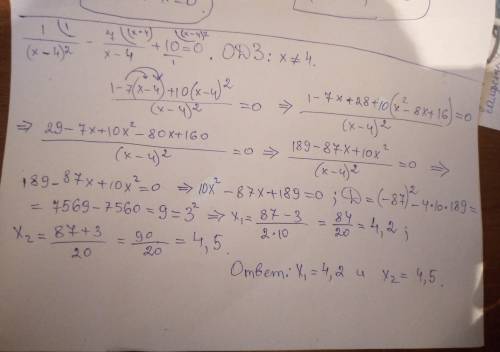 x=0.
1/(x-4)² (1 - 7/(x-4) ((x-4) + 10/1 ((x-4)² =0. ОДЗ: x≠4.
(1-7(x-4)+10(x-4)²)/(x-4)² =0 ⇒ (1-7x+28+10(x²-8x+16))/(x-4)² =0
⇒ (29-7x+10x²-80x+160)/(x-4)² =0 ⇒ (189-87x+10x²)/(x-4)² =0 ⇒
189-87x+10x²=0 ⇒ 10x²-87x+189=0; D=(-87)²-4·10·189=
=7569-7560=9=3² ⇒ x₁=(87-3)/(2·10)=84/20=4,2;
x₂=(87+3)/20=90/20=4,5.
Ответ: x₁=4,2 и x₂=4,5.